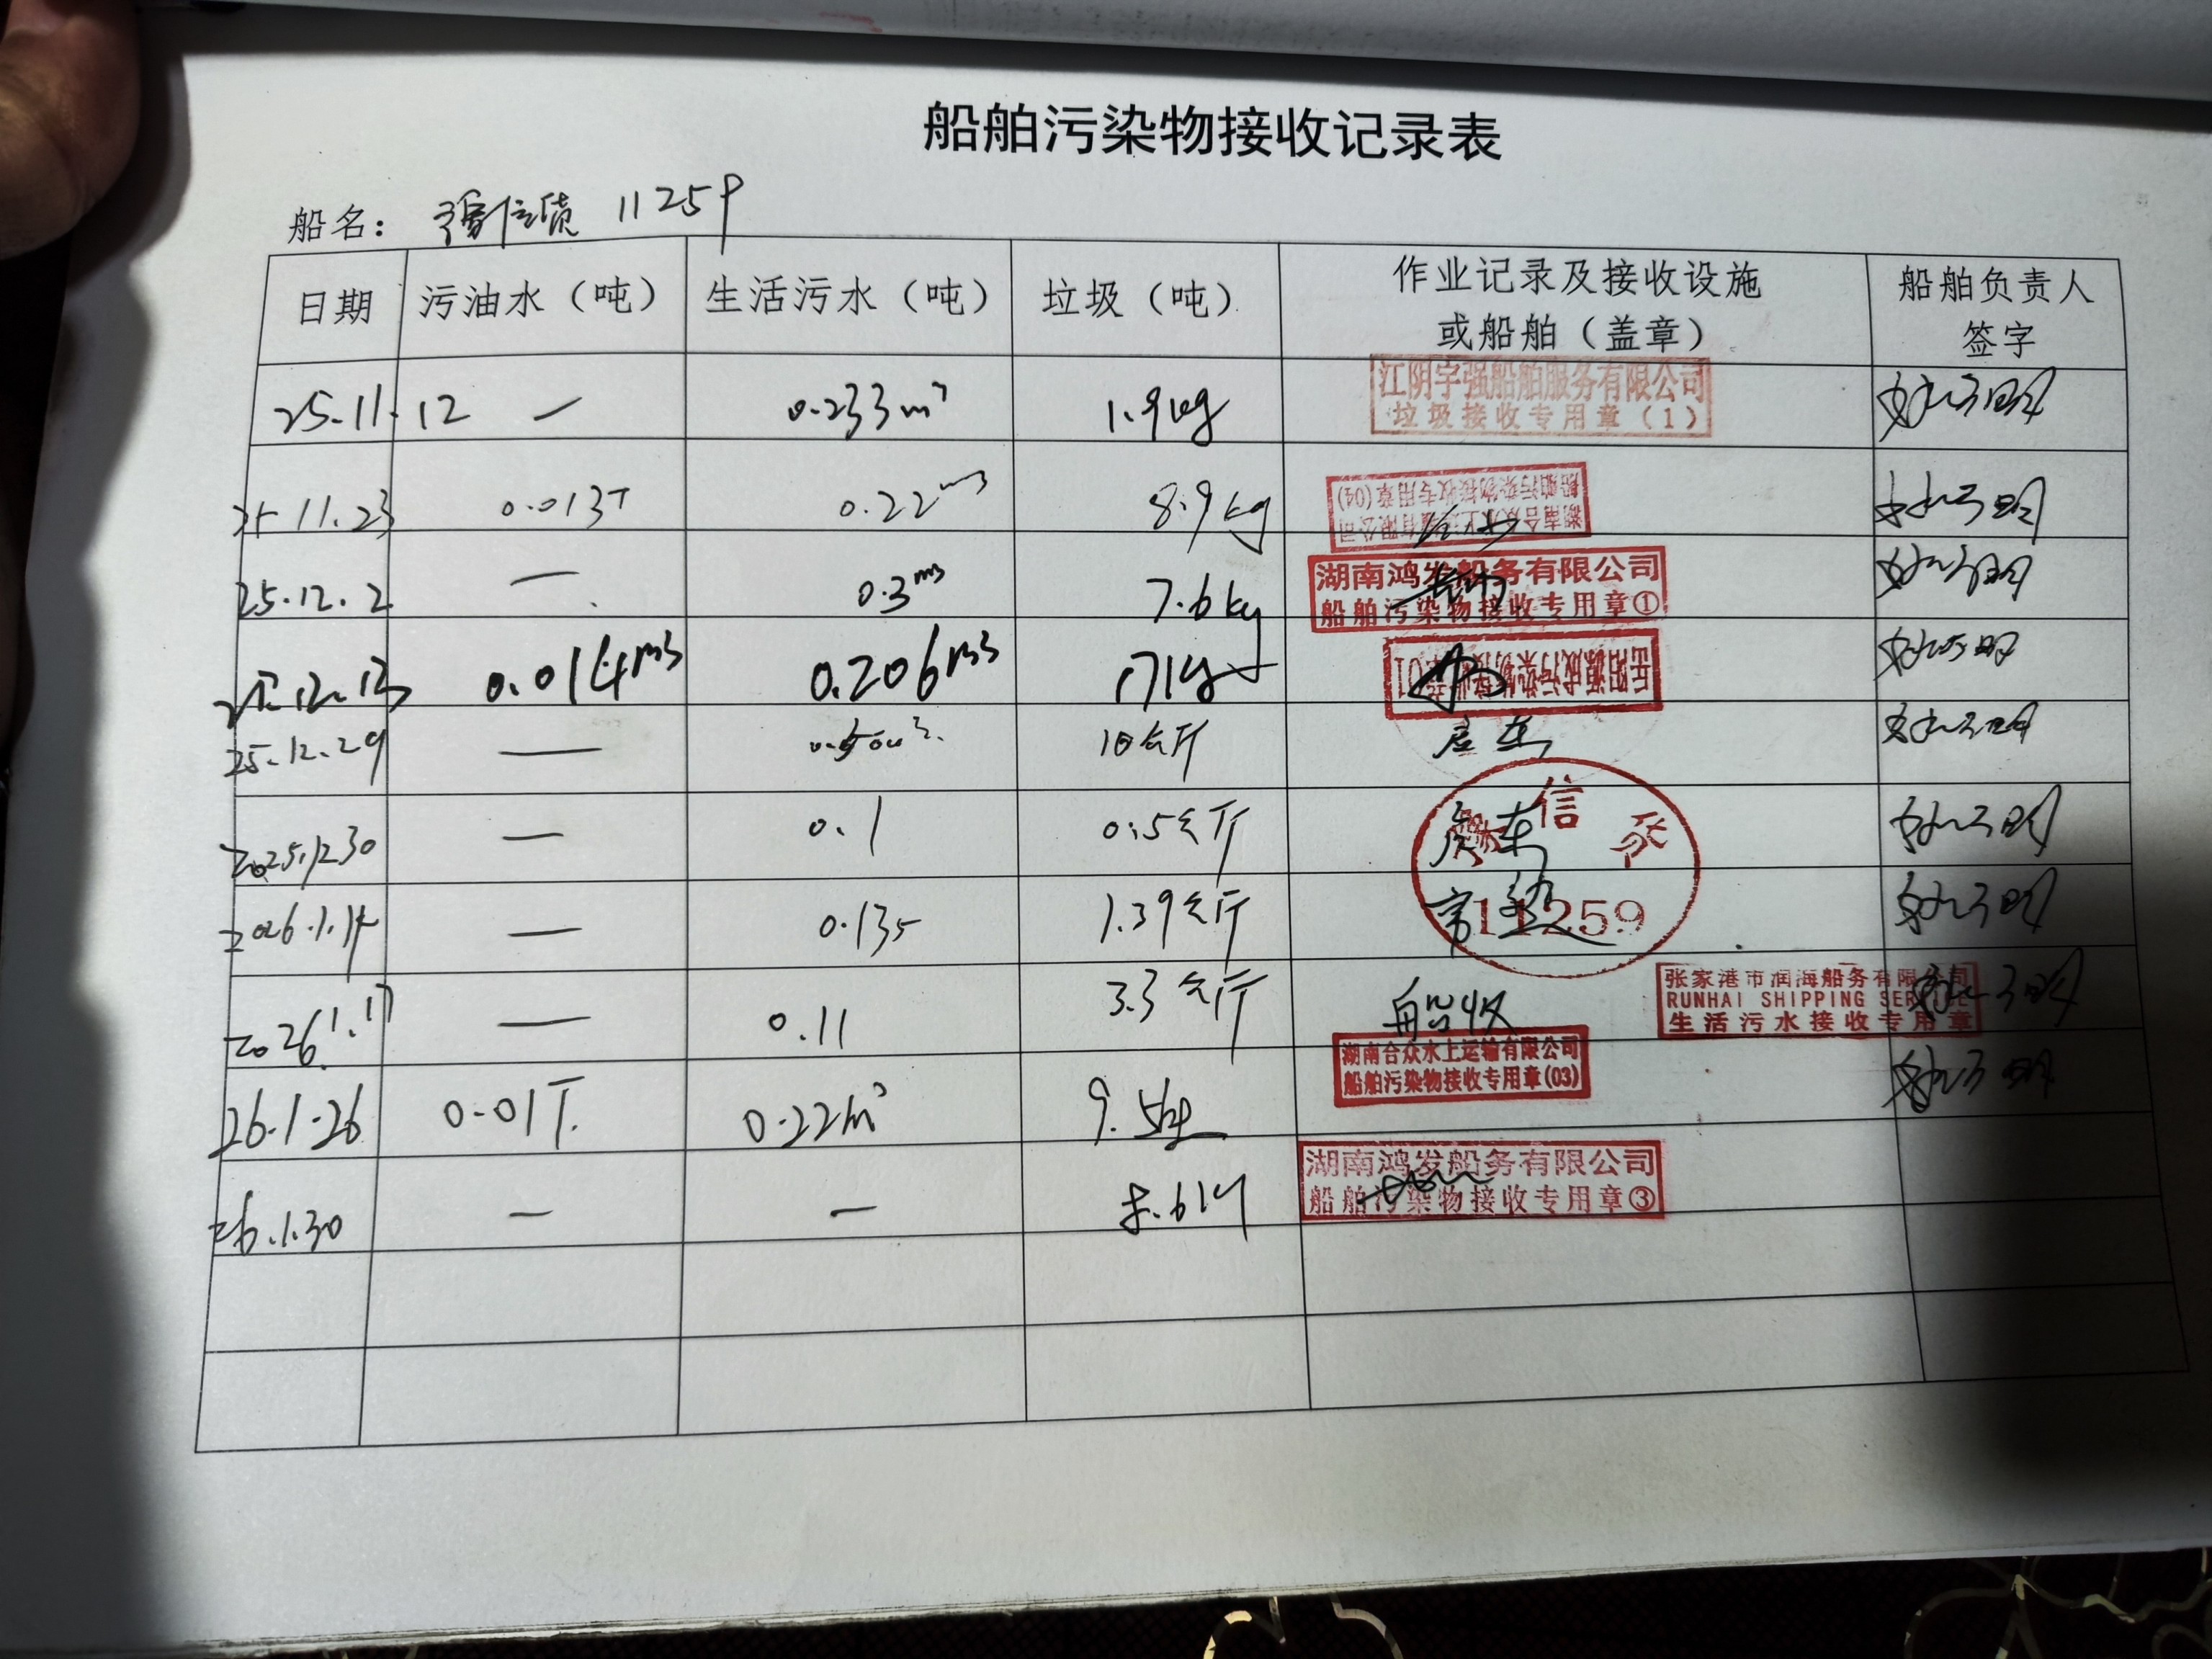 船舶污染物接收记录表
船名： 豫信货 11259
日期 污油水（吨） 生活污水（吨） 垃圾（吨） 作业记录及接收设施或船舶（盖章） 船舶负责人签字
25.11.12 — 0.233m³ 1.9kg 江阴宇强船舶服务有限公司 垃圾接收专用章（1）
25.11.23 0.013T 0.22m³ 8.9kg 湖南合众水上运输有限公司 船舶污染物接收专用章(04)
25.12.2 — 0.3m³ 7.6kg 湖南鸿发船务有限公司 船舶污染物接收专用章①
25.12.13 0.014m³ 0.206m³
25.12.29 — 10公斤
2025.12.30 — 0.1 0.5公斤 信 11259
2026.1.14 — 0.135 1.39公斤
2026.1.17 — 0.11 3.3公斤 船收 张家港市润海船务有限公司 RUNHAI SHIPPING SERVICE 生活污水接收专用章
26.1.26 0.01T. 0.22m³ 湖南合众水上运输有限公司 船舶污染物接收专用章(03)
26.1.30 — — 湖南鸿发船务有限公司 船舶污染物接收专用章③